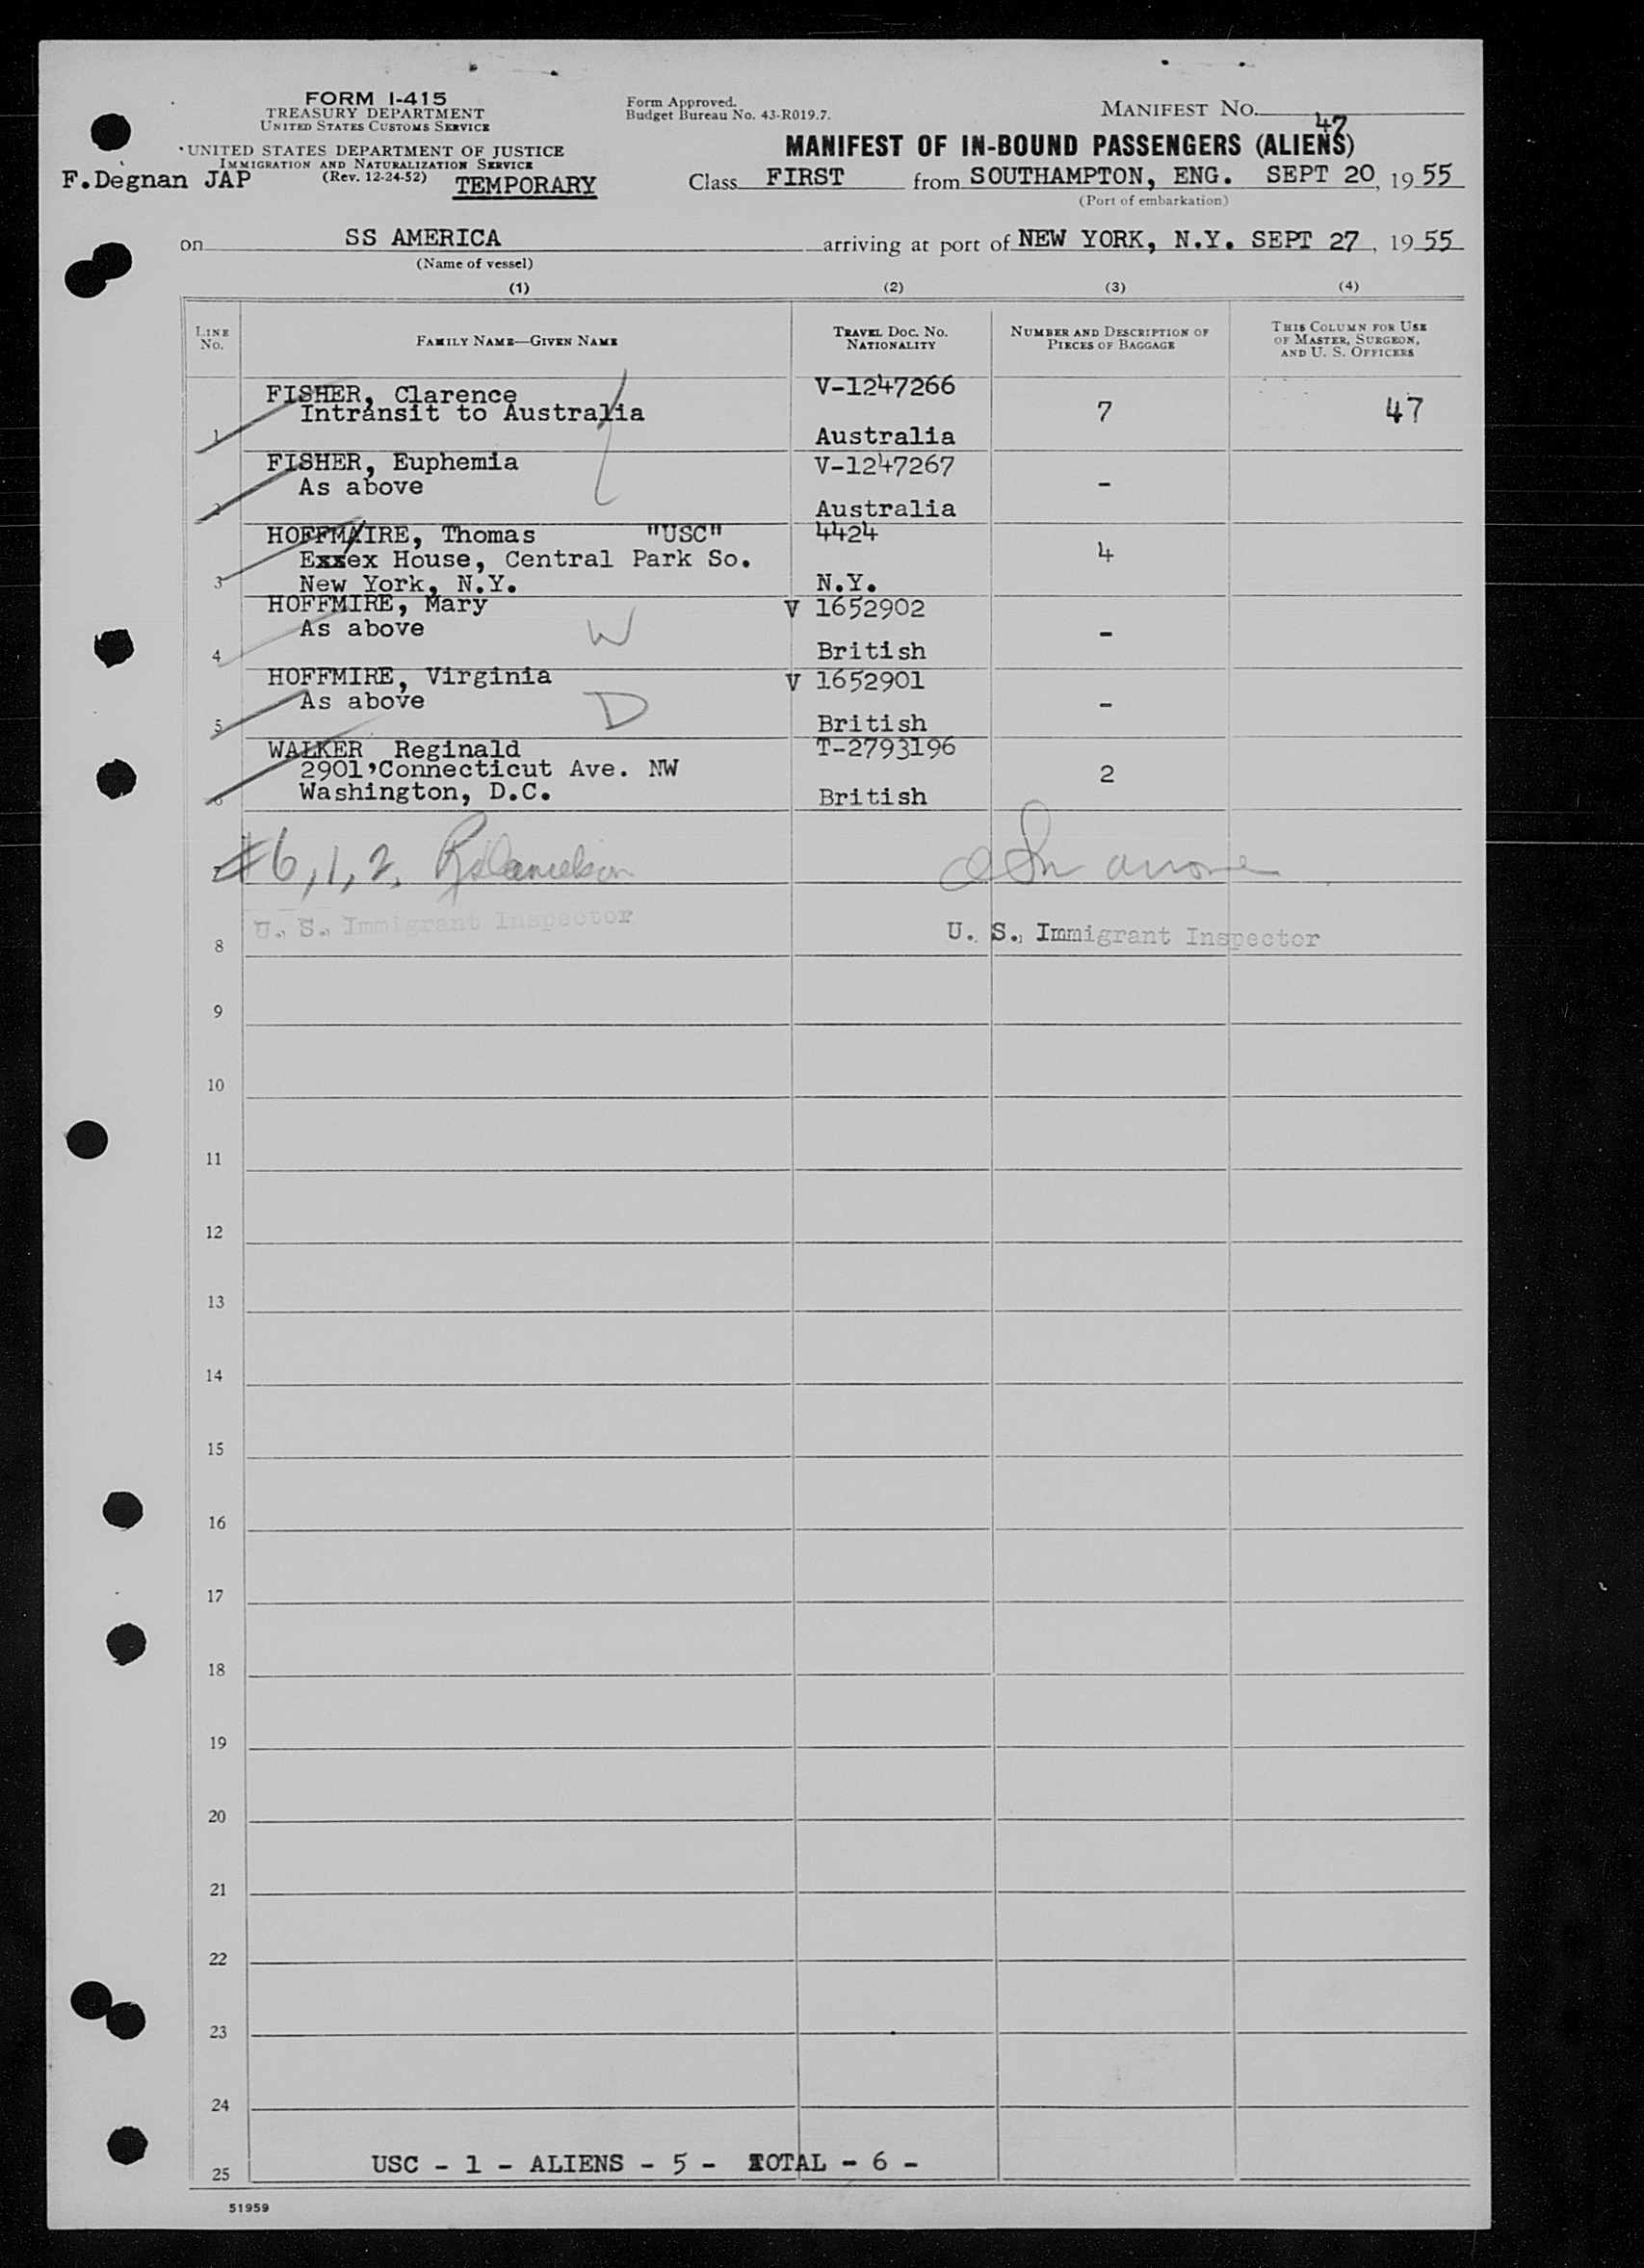 FORM I-415
TREASURY DEPARTMENT
UNITED STATES CUSTOMS SERVICE
UNITED STATES DEPARTMENT OF JUSTICE
IMMIGRATION AND NATURALIZATION SERVICE
(Rev. 12-24-52)
F.Degnan JAP
TEMPORARY
Form Approved.
Budget Bureau No. 43-R019.7.
MANIFEST No.
47
MANIFEST OF IN-BOUND PASSENGERS (ALIENS)
Class FIRST from SOUTHAMPTON, ENG. SEPT 20, 19 55
(Port of embarkation)
on SS AMERICA arriving at port of NEW YORK, N.Y. SEPT 27, 19 55
(Name of vessel)
(1) (2) (3) (4)
LINE No. FAMILY NAME—GIVEN NAME TRAVEL DOC. NO. NATIONALITY NUMBER AND DESCRIPTION OF PIECES OF BAGGAGE THIS COLUMN FOR USE OF MASTER, SURGEON, AND U. S. OFFICERS
FISHER, Clarence V-1247266
Intransit to Australia 7 47
1 Australia
FISHER, Euphemia V-1247267
As above -
2 Australia
HOFFMAIRE, Thomas "USC" 4424
Exxex House, Central Park So. 4
3 New York, N.Y. N.Y.
HOFFMIRE, Mary V 1652902
As above W -
4 British
HOFFMIRE, Virginia V 1652901
As above D -
5 British
WALKER Reginald T-2793196
2901,Connecticut Ave. NW 2
6 Washington, D.C. British
7 #6,1,2,
U. S. Immigrant Inspector U. S. Immigrant Inspector
8
9
10
11
12
13
14
15
16
17
18
19
20
21
22
23
24
25 USC - 1 - ALIENS - 5 - TOTAL - 6 -
51959